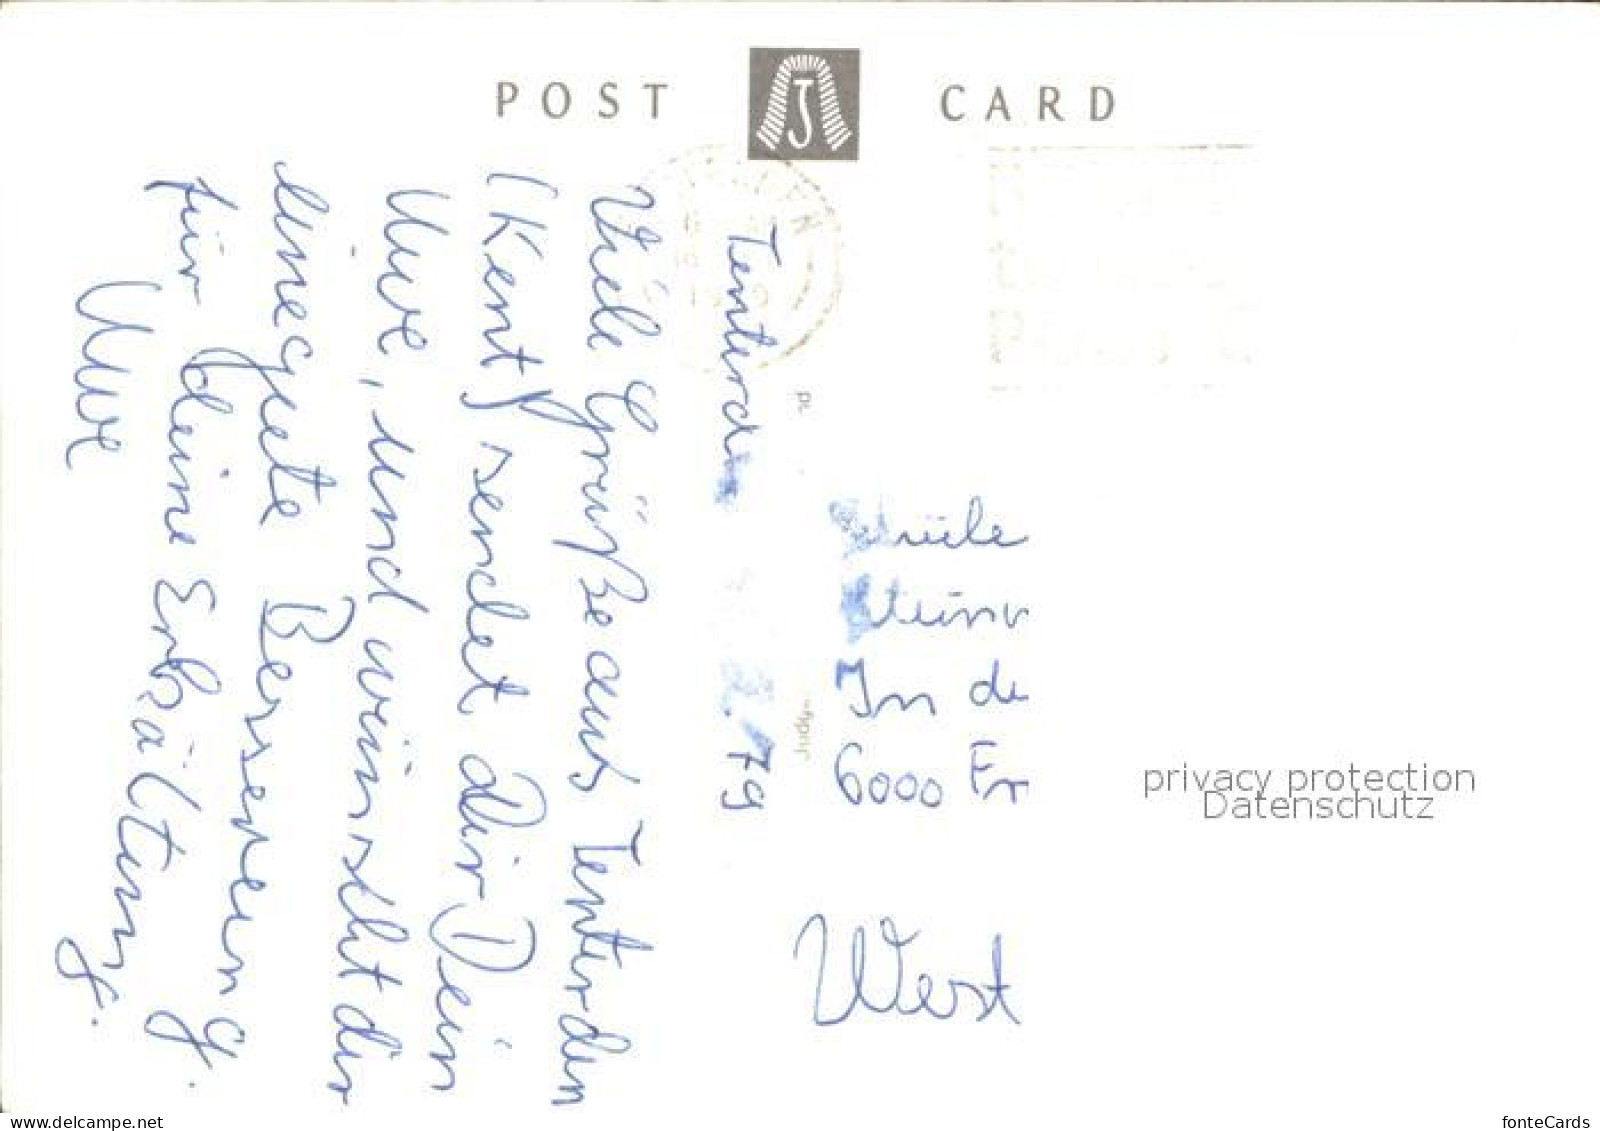 POST CARD
Tenterd
79
Viele Grüße aus Tenterden
(Kent) sendet dir Dein
Uwe, und wünscht dir
eine gute Besserung.
für deine Erkältung.
Uwe
In de
6000 Fr
West
privacy protection
Datenschutz
delcampe.net
fonteCards